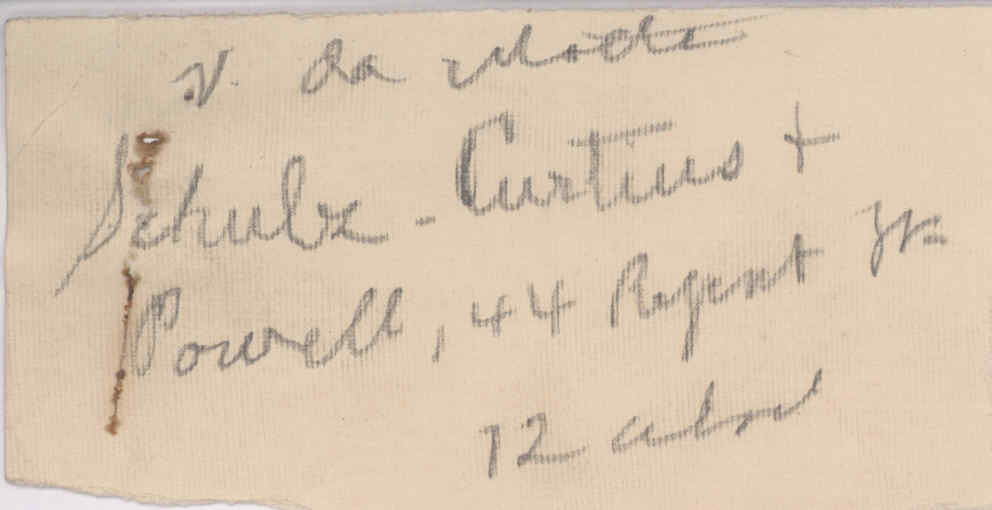 v. da Motta
Schulz-Curtius +
Powell, 44 Regent St.
12